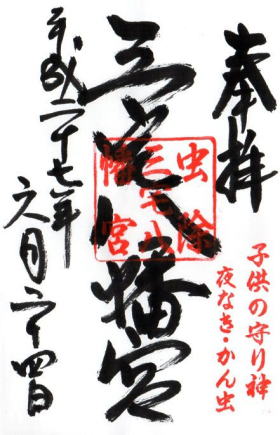 奉拝
子供の守り神
夜なき・かん虫
三宅八幡宮
虫除
三宅八
幡宮
平成二十七年
六月二十四日